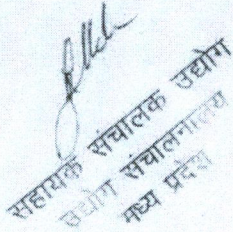 सहायक संचालक उद्योग
उद्योग संचालनालय
मध्य प्रदेश